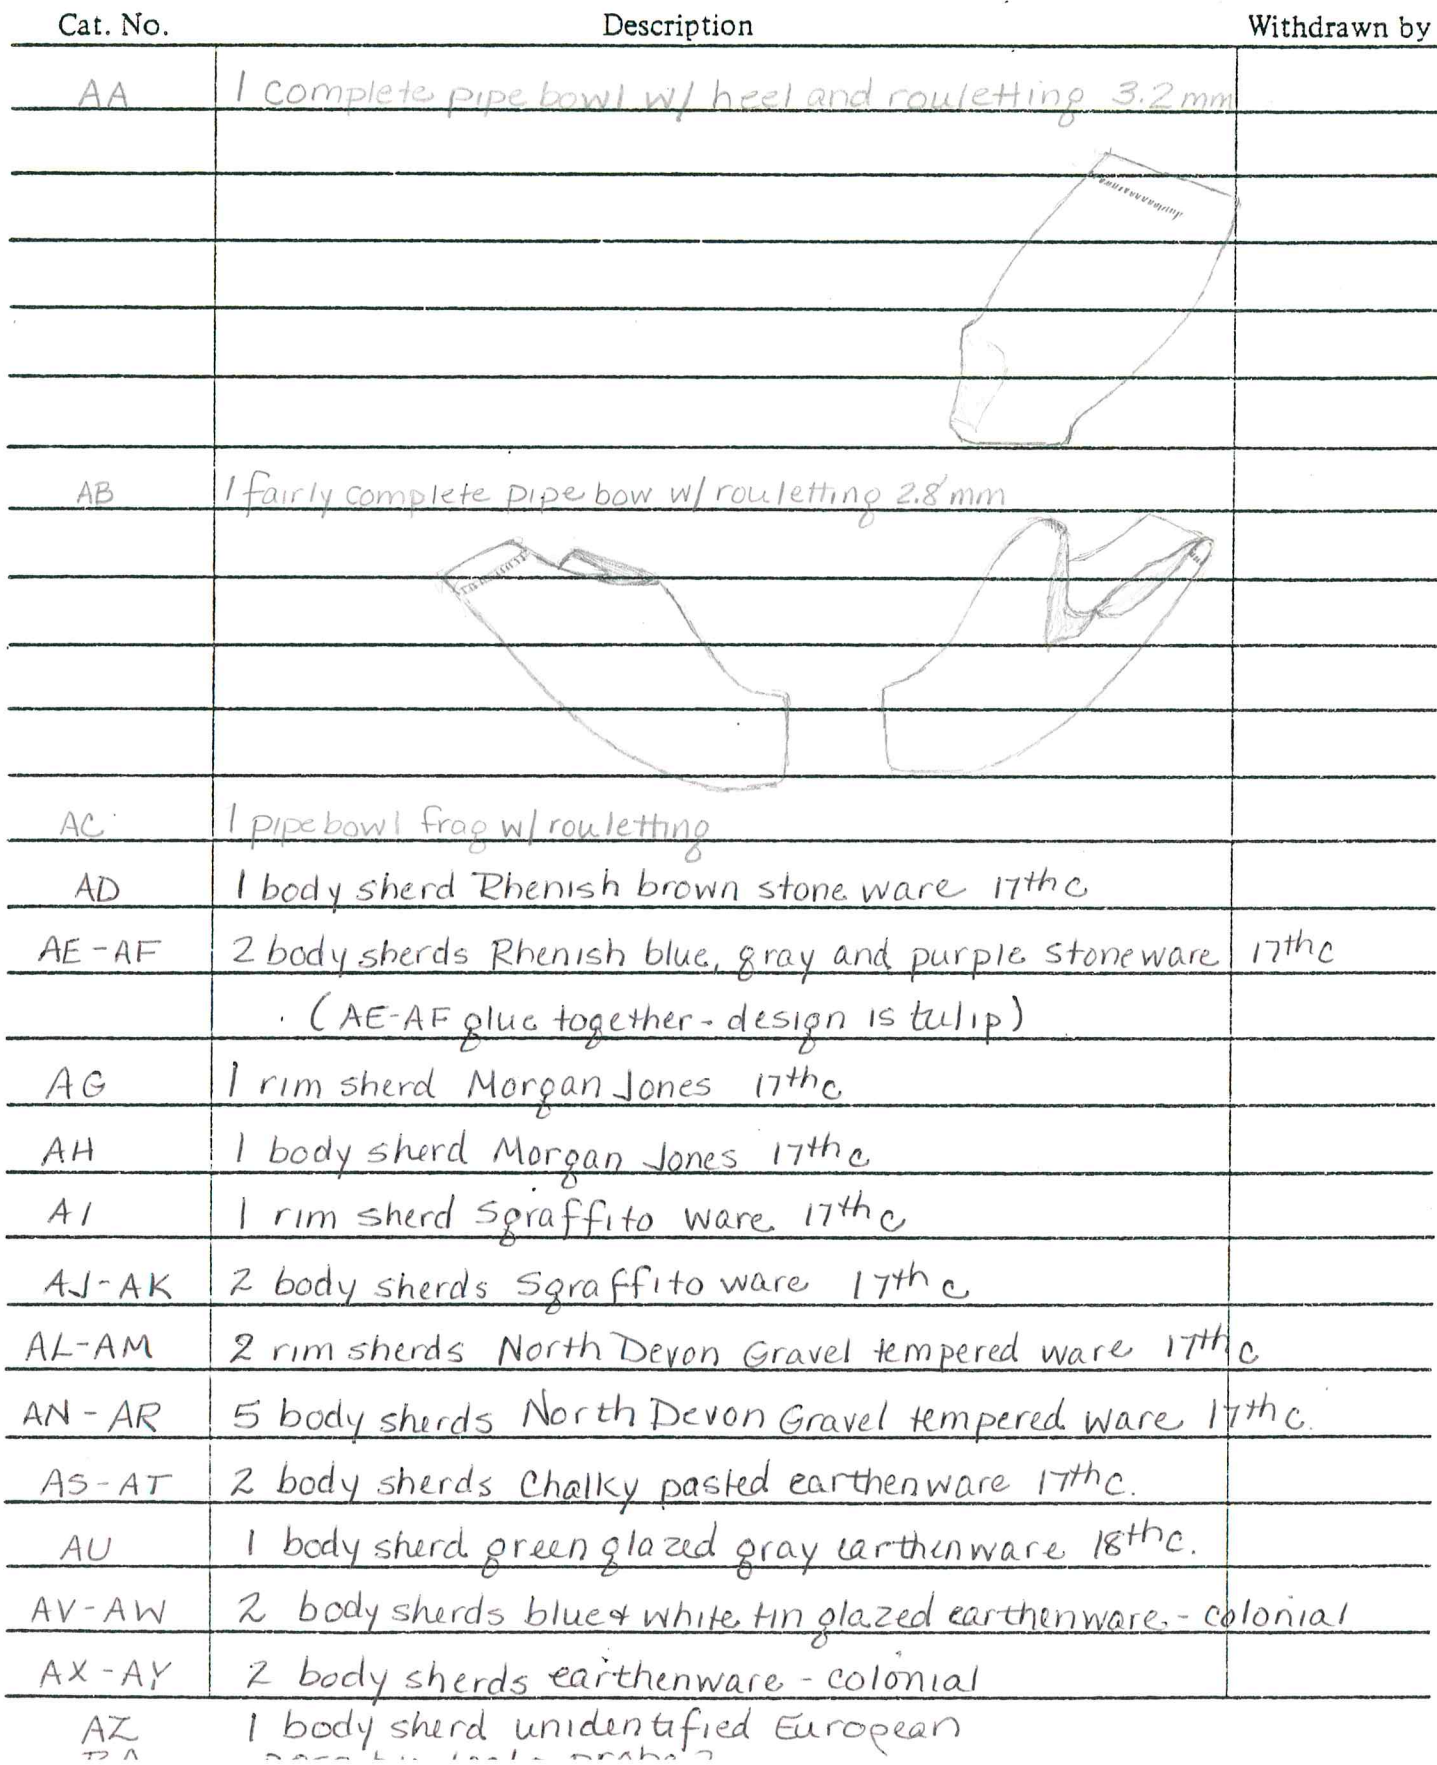 Cat. No. Description Withdrawn by
AA 1 complete pipe bowl w/ heel and rouletting 3.2 mm
AB 1 fairly complete pipe bow w/ rouletting 2.8 mm
AC 1 pipe bowl frag w/ rouletting
AD 1 body sherd Rhenish brown stone ware 17th c
AE-AF 2 body sherds Rhenish blue, gray and purple stoneware 17th c
(AE-AF glue together - design is tulip)
AG 1 rim sherd Morgan Jones 17th c
AH 1 body sherd Morgan Jones 17th c
AI 1 rim sherd Sgraffito ware 17th c
AJ-AK 2 body sherds Sgraffito ware 17th c
AL-AM 2 rim sherds North Devon Gravel tempered ware 17th c
AN - AR 5 body sherds North Devon Gravel tempered ware 17th c.
AS-AT 2 body sherds Chalky pasted earthenware 17th c.
AU 1 body sherd green glazed gray earthenware 18th c.
AV-AW 2 body sherds blue & white tin glazed earthenware - colonial
AX-AY 2 body sherds earthenware - colonial
AZ 1 body sherd unidentified European